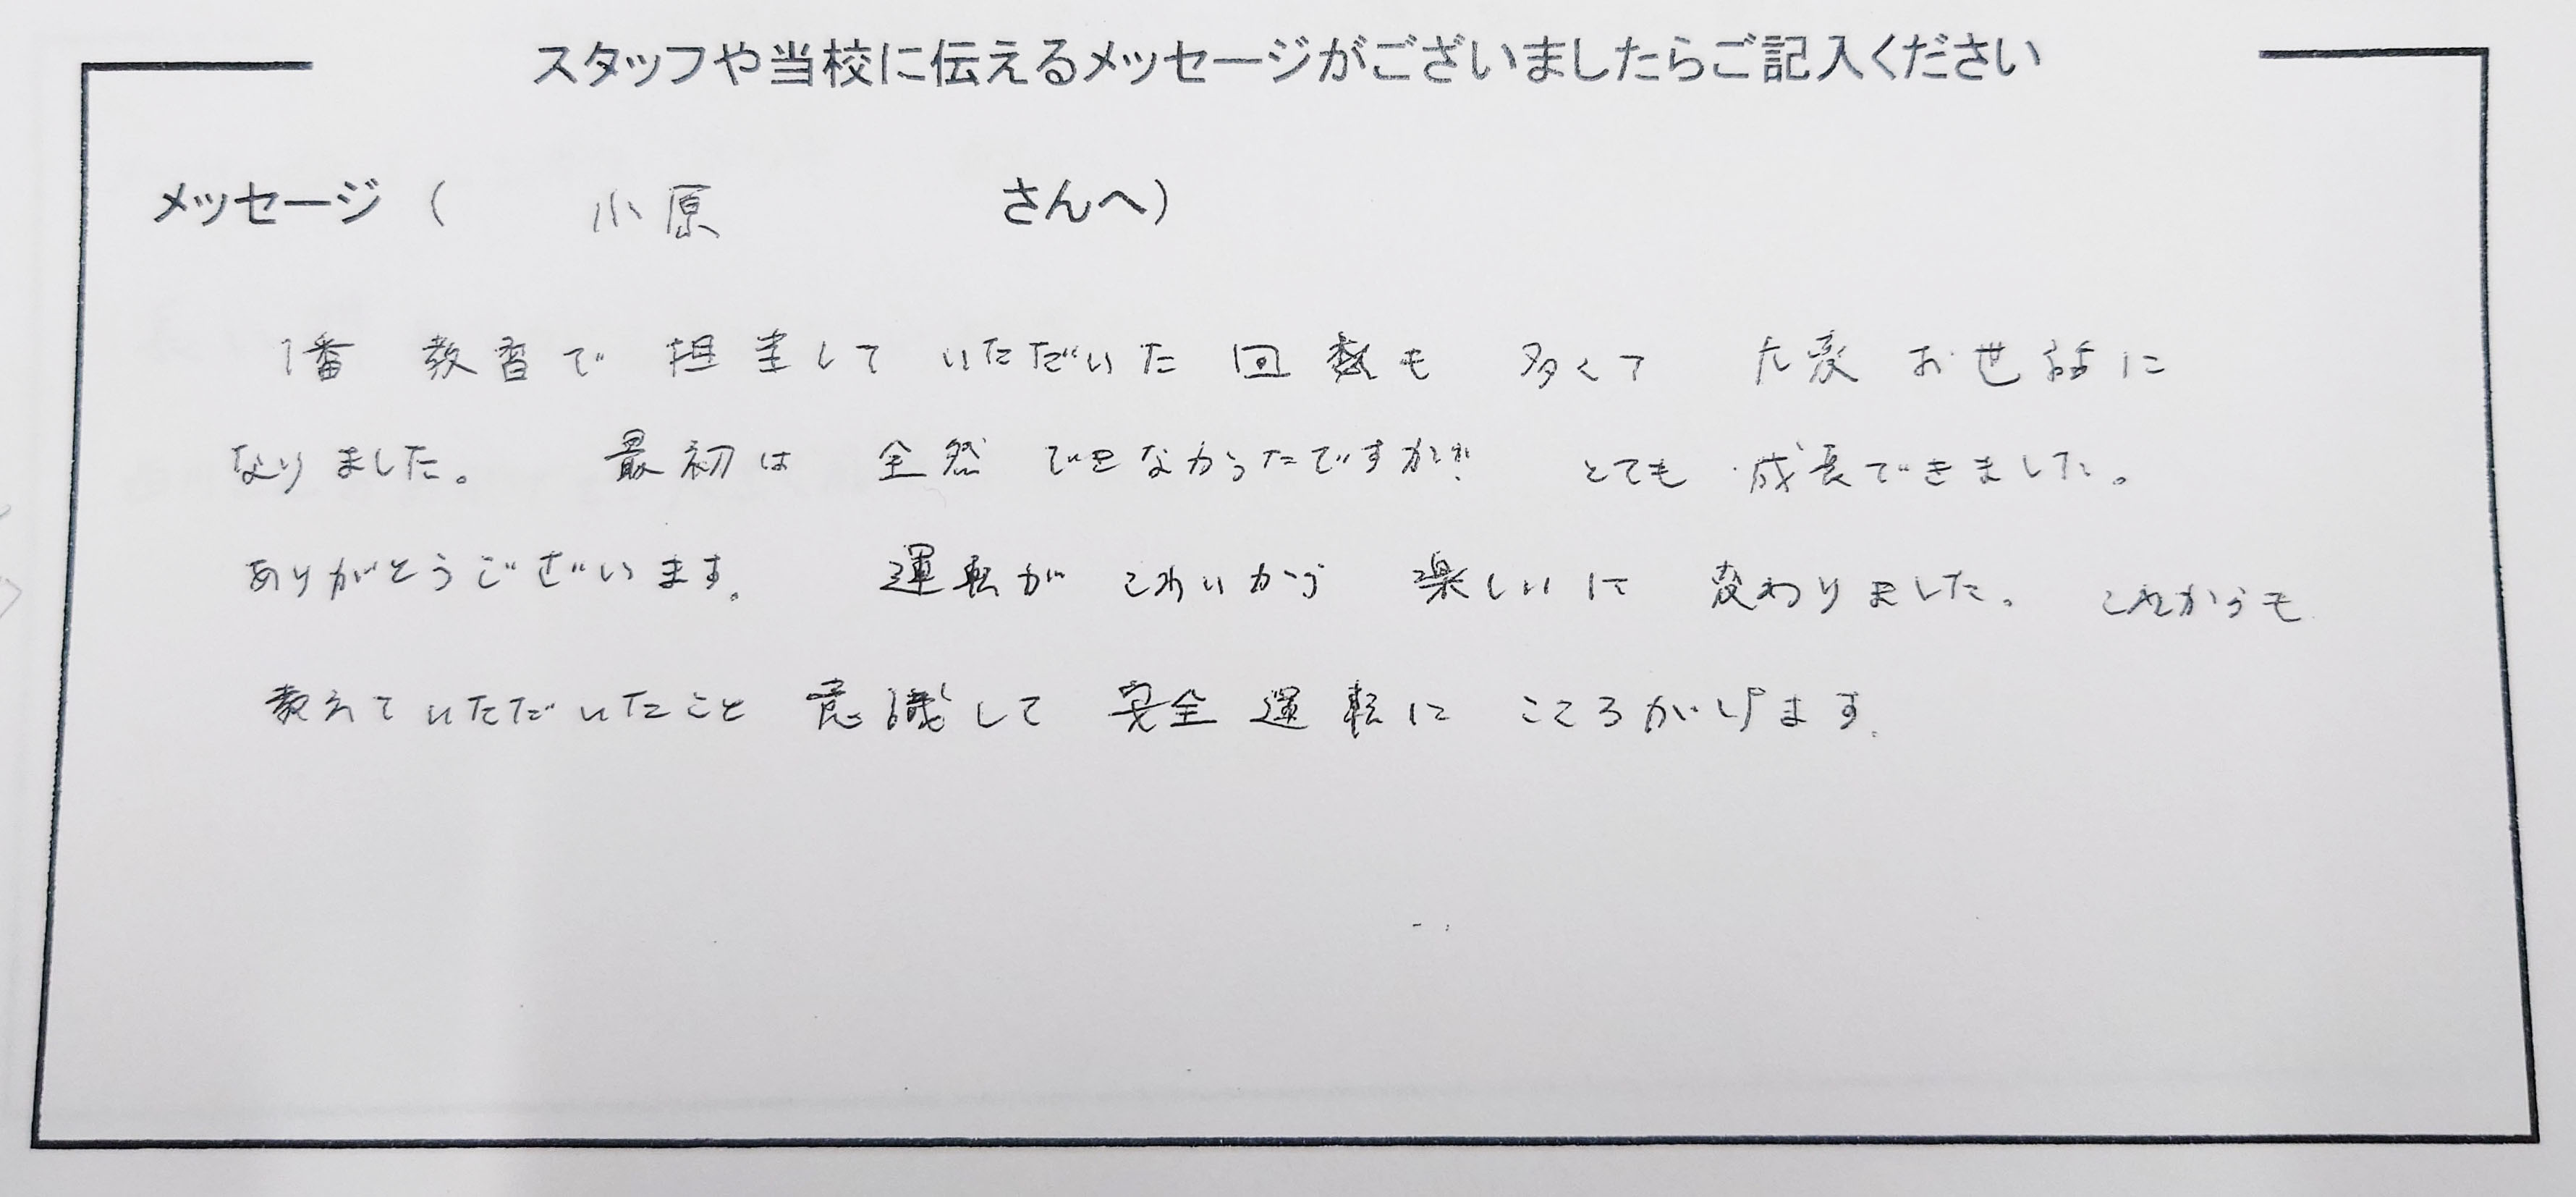 スタッフや当校に伝えるメッセージがございましたらご記入ください
メッセージ（ 小原 さんへ）
1番 教習で 担当して いただいた 回数も 多くて 大変 お世話に
なりました。 最初は 全然 できなかったですが とても 成長できました。
ありがとうございます。 運転が こわいから 楽しいに 変わりました。 これからも
教えていただいたこと 意識して 安全運転に こころがけます。